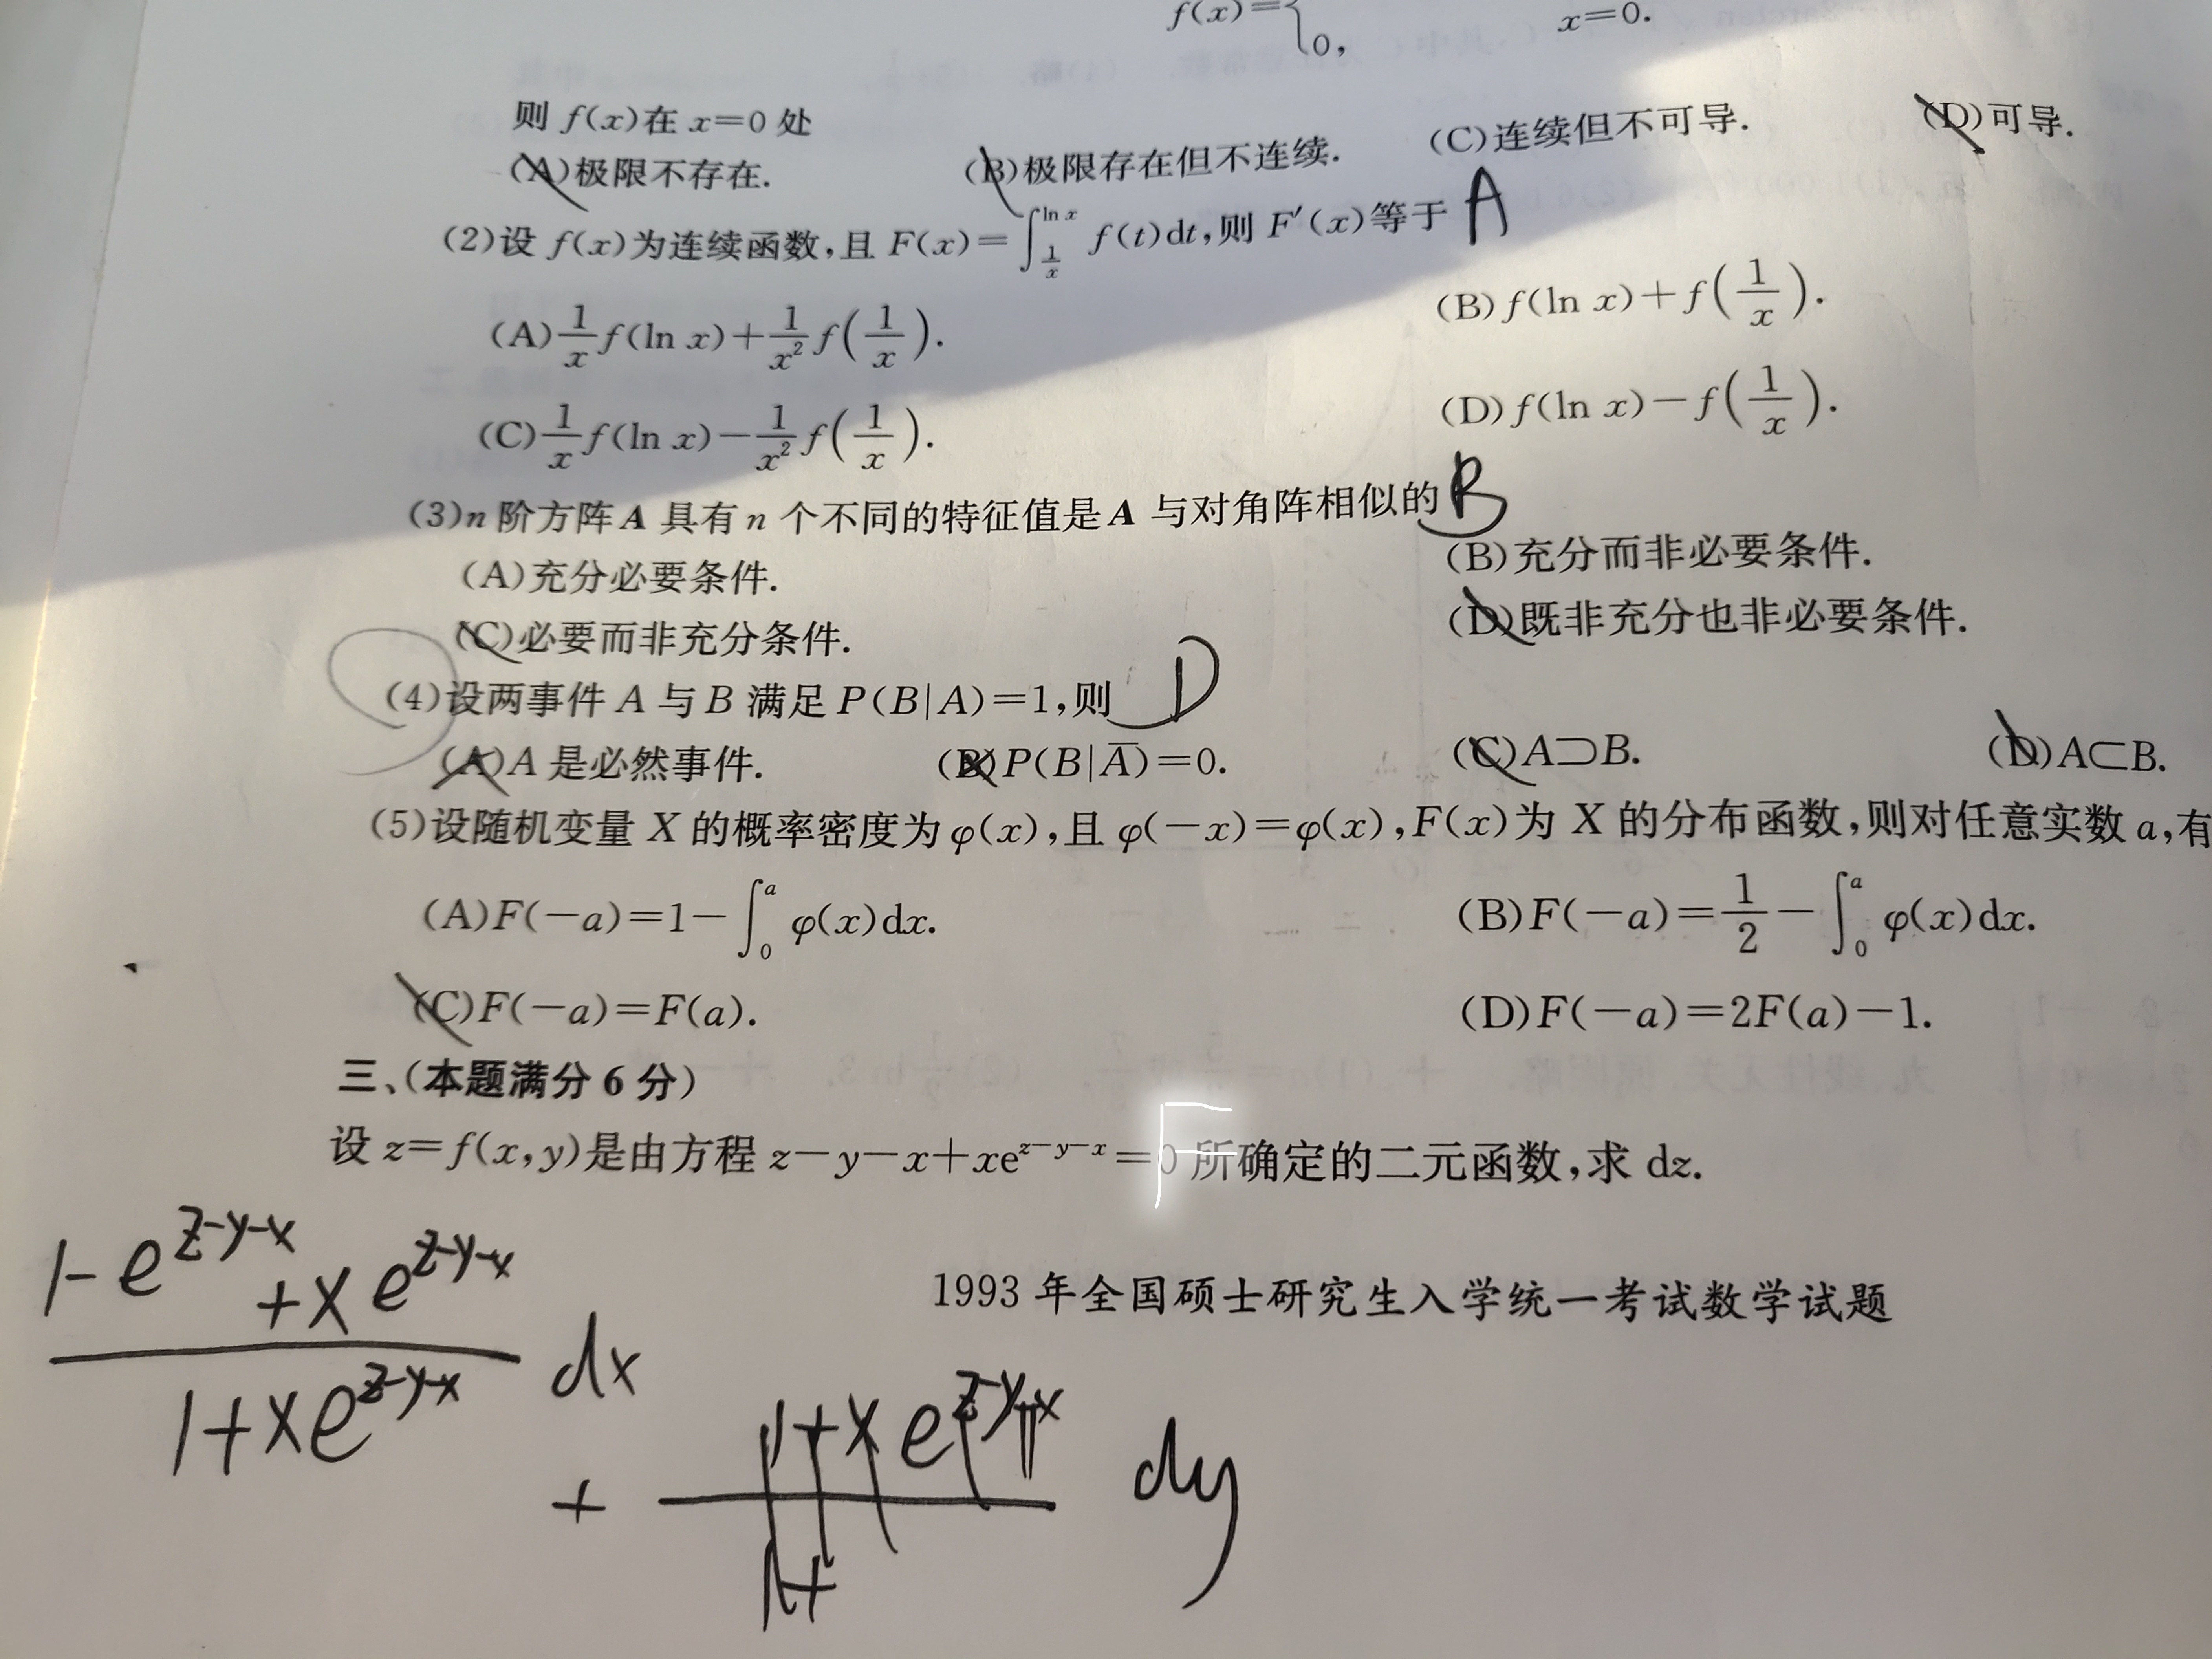 f(x)={
0, x=0.
则 f(x)在 x=0 处
(A)极限不存在. (B)极限存在但不连续. (C)连续但不可导. (D)可导.
(2)设 f(x)为连续函数,且 F(x)=∫_{1/x}^{ln x} f(t)dt,则 F′(x)等于 A
(A) 1/x f(ln x)+1/x² f(1/x). (B) f(ln x)+f(1/x).
(C) 1/x f(ln x)−1/x² f(1/x). (D) f(ln x)−f(1/x).
(3)n 阶方阵 A 具有 n 个不同的特征值是 A 与对角阵相似的 B
(A)充分必要条件. (B)充分而非必要条件.
(C)必要而非充分条件. (D)既非充分也非必要条件.
(4)设两事件 A 与 B 满足 P(B|A)=1,则 D
(A)A 是必然事件. (B)P(B|A̅)=0. (C)A⊃B. (D)A⊂B.
(5)设随机变量 X 的概率密度为 φ(x),且 φ(−x)=φ(x),F(x)为 X 的分布函数,则对任意实数 a,有
(A)F(−a)=1−∫_0^a φ(x)dx. (B)F(−a)=1/2−∫_0^a φ(x)dx.
(C)F(−a)=F(a). (D)F(−a)=2F(a)−1.
三、(本题满分 6 分)
设 z=f(x,y)是由方程 z−y−x+xe^{z−y−x}=0 所确定的二元函数,求 dz.
F
1993 年全国硕士研究生入学统一考试数学试题
1-e^{z-y-x}+xe^{z-y-x}
1+xe^{z-y-x} dx
+ 1+xe^{z-y-x} dy
1+